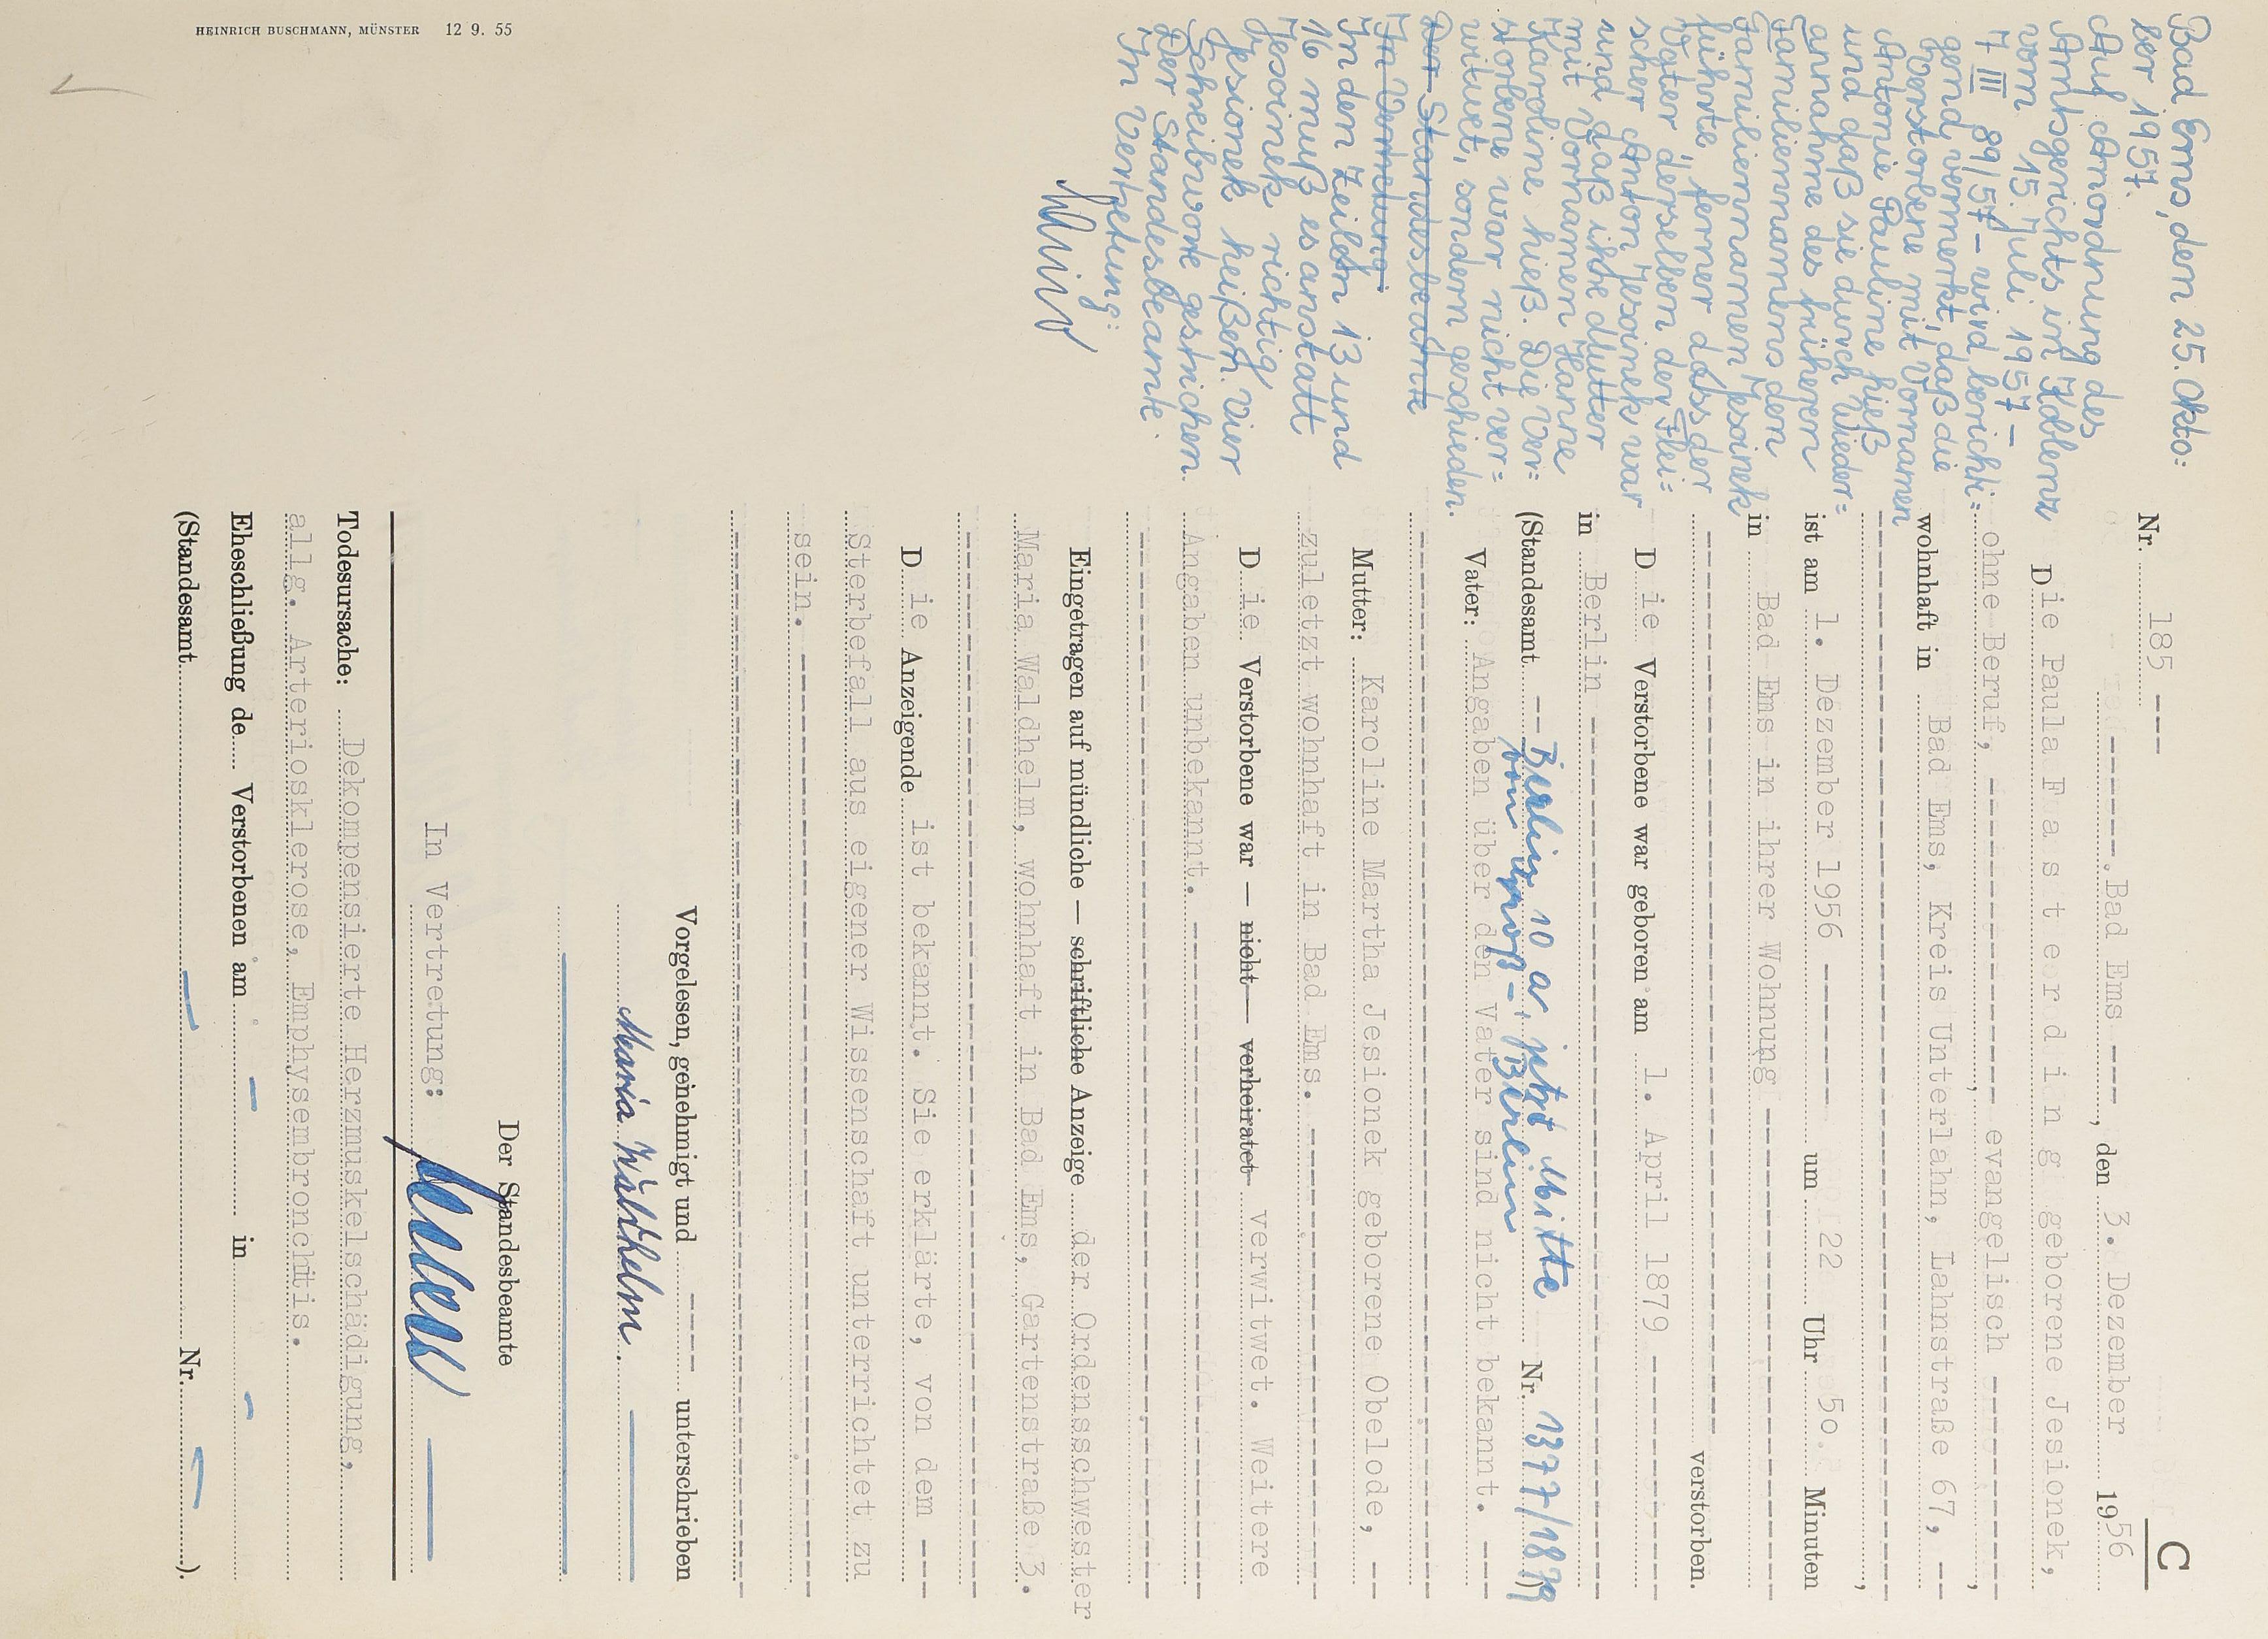 C
Nr. 185 ---
-------, Bad Ems ---, den 3. Dezember 1956
Die Paula F a s t e r d i n g geborene Jesionek,
ohne Beruf, --------------- evangelisch ----------,
wohnhaft in Bad Ems, Kreis Unterlahn, Lahnstraße 67, --
,
ist am 1. Dezember 1956 ------- um 22 Uhr 50 Minuten
in Bad Ems in ihrer Wohnung ---------------
verstorben.
Die Verstorbene war geboren am 1. April 1879 --------
in Berlin ---------------
(Standesamt -- Berlin 10 a, jetzt Mitte Nr. 1377/1879)
von groß-Berlin
Vater: Angaben über den Vater sind nicht bekannt. ---
Mutter: Karoline Martha Jesionek geborene Obelode, --
zuletzt wohnhaft in Bad Ems. ---------------
Die Verstorbene war — nicht — verheiratet verwitwet. Weitere
Angaben unbekannt. ---------------
Eingetragen auf mündliche — schriftliche Anzeige der Ordensschwester
Maria Waldhelm, wohnhaft in Bad Ems, Gartenstraße 3.
Die Anzeigende ist bekannt. Sie erklärte, von dem ---
Sterbefall aus eigener Wissenschaft unterrichtet zu
sein. ---------------
Vorgelesen, genehmigt und ---- unterschrieben
Maria Waldhelm.
Der Standesbeamte
In Vertretung:
Todesursache: Dekompensierte Herzmuskelschädigung,
allg. Arteriosklerose, Emphysembronchitis.
Eheschließung de Verstorbenen am - in -
(Standesamt - Nr. - ).
Bad Ems, den 25. Okto=
ber 1957.
Auf Anordnung des
Amtsgerichts in Koblenz
vom 15. Juli 1957 –
7 III 89/57 – wird berichti=
gend vermerkt, daß die
Verstorbene mit Vornamen
Antonie Pauline hieß
und daß sie durch Wieder=
annahme des früheren
Familiennamens den
Familiennamen Jesoinek
führte, ferner dass der
Vater derselben der Flei=
scher Anton Jesoinek war
und daß ihre Mutter
mit Vornamen Hanne
Karoline hieß. Die Ver=
storbene war nicht ver=
witwet, sondern geschieden.
Der Standesbeamte
In Vertretung
In den Zeilen 13 und
16 muß es anstatt
Jesoinek richtig
Jesionek heißen. Vier
Schreibworte gestrichen.
Der Standesbeamte.
In Vertretung:
HEINRICH BUSCHMANN, MÜNSTER 12 9. 55